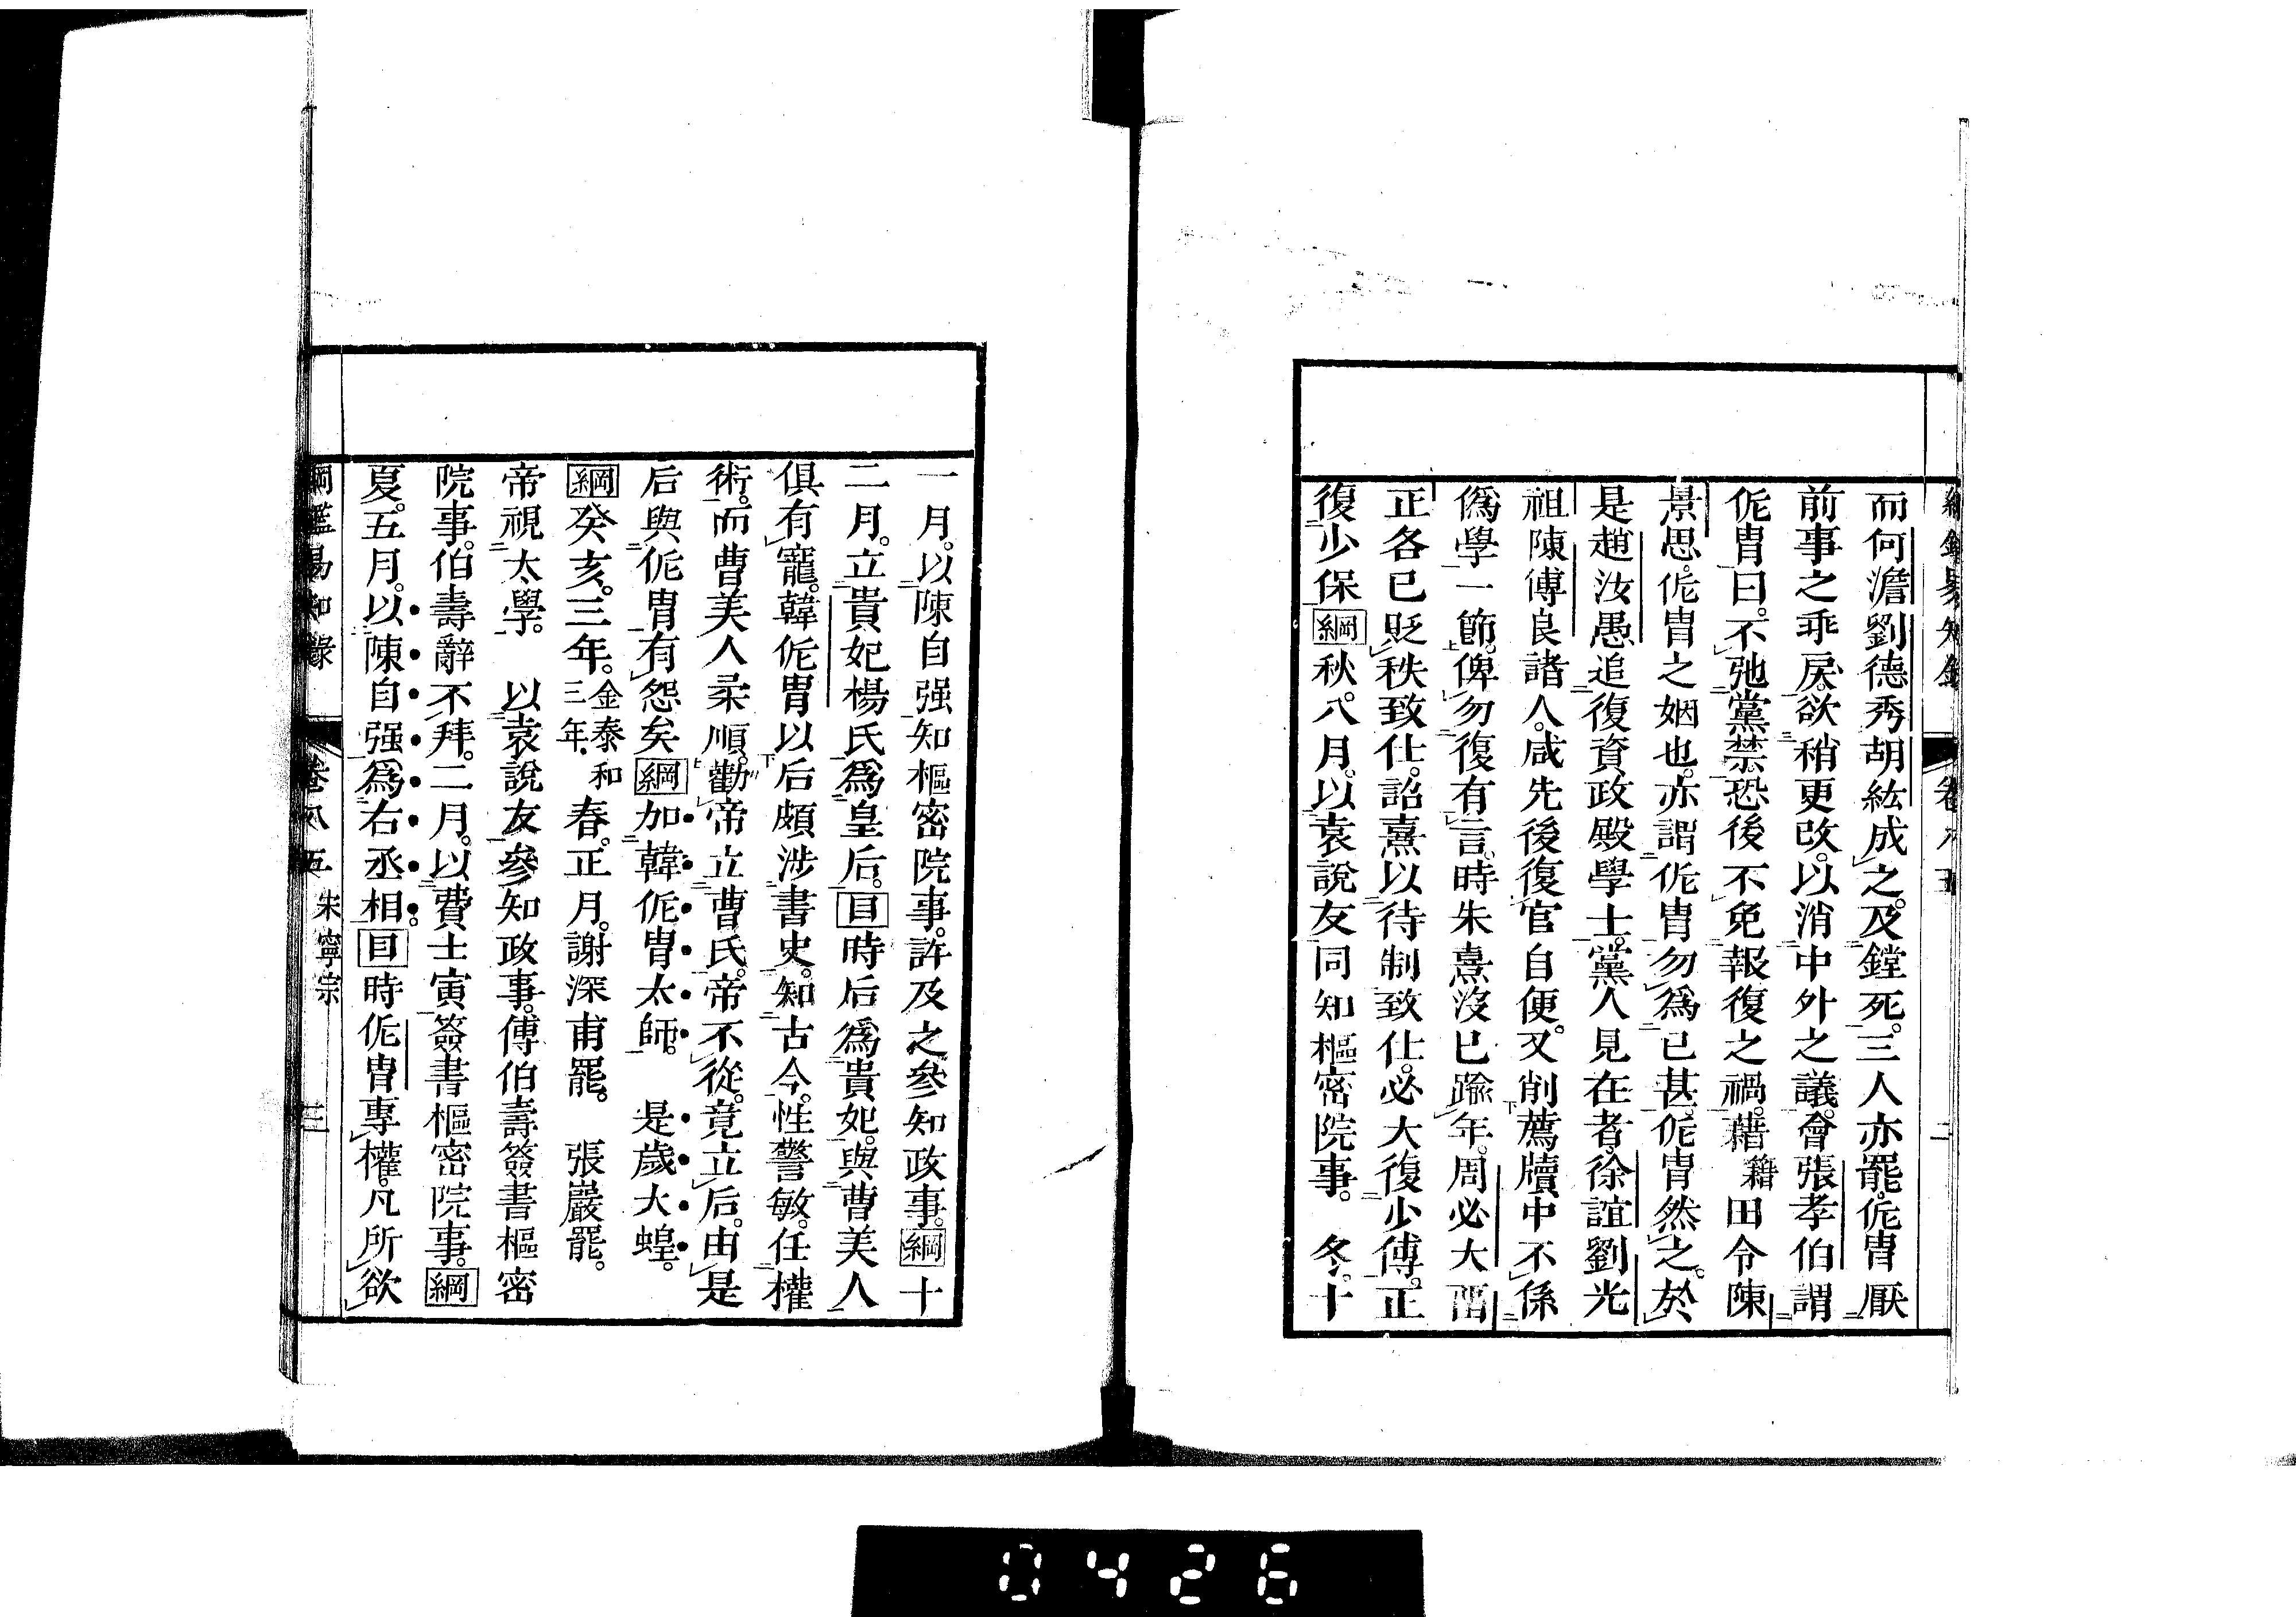 而何澹劉德秀胡紘成之。及鏜死。三人亦罷。侂冑厭
前事之乖戾。欲稍更改。以消中外之議。會張孝伯謂
侂冑曰。不弛黨禁。恐後不免報復之禍。藉籍田令陳
景思。侂冑之姻也。亦謂侂冑勿爲已甚。侂冑然之。於
是趙汝愚追復資政殿學士。黨人見在者。徐誼劉光
祖陳傅良諸人。咸先後復官自便。又削薦牘中不係
僞學一節。俾勿復有言。時朱熹沒已踰年。周必大畱
正各已貶秩致仕。詔熹以待制致仕。必大復少傅。正
復少保綱秋。八月。以袁說友同知樞密院事。　冬。十
一月。以陳自强知樞密院事。許及之參知政事。綱十
二月。立貴妃楊氏爲皇后。目時后爲貴妃。與曹美人
俱有寵。韓侂冑以后頗涉書史。知古今。性警敏。任權
術。而曹美人柔順。勸帝立曹氏。帝不從。竟立后。由是
后與侂冑有怨矣綱加韓侂冑太師。　是歲大蝗。
綱癸亥。三年。金泰和三年。春。正月。謝深甫罷。　張巖罷。
帝視太學。　以袁說友參知政事。傅伯壽簽書樞密
院事。伯壽辭不拜。二月。以費士寅簽書樞密院事。綱
夏。五月。以陳自强爲右丞相。目時侂冑專權。凡所欲
綱鑑易知錄　卷八五　宋寧宗　三
0426